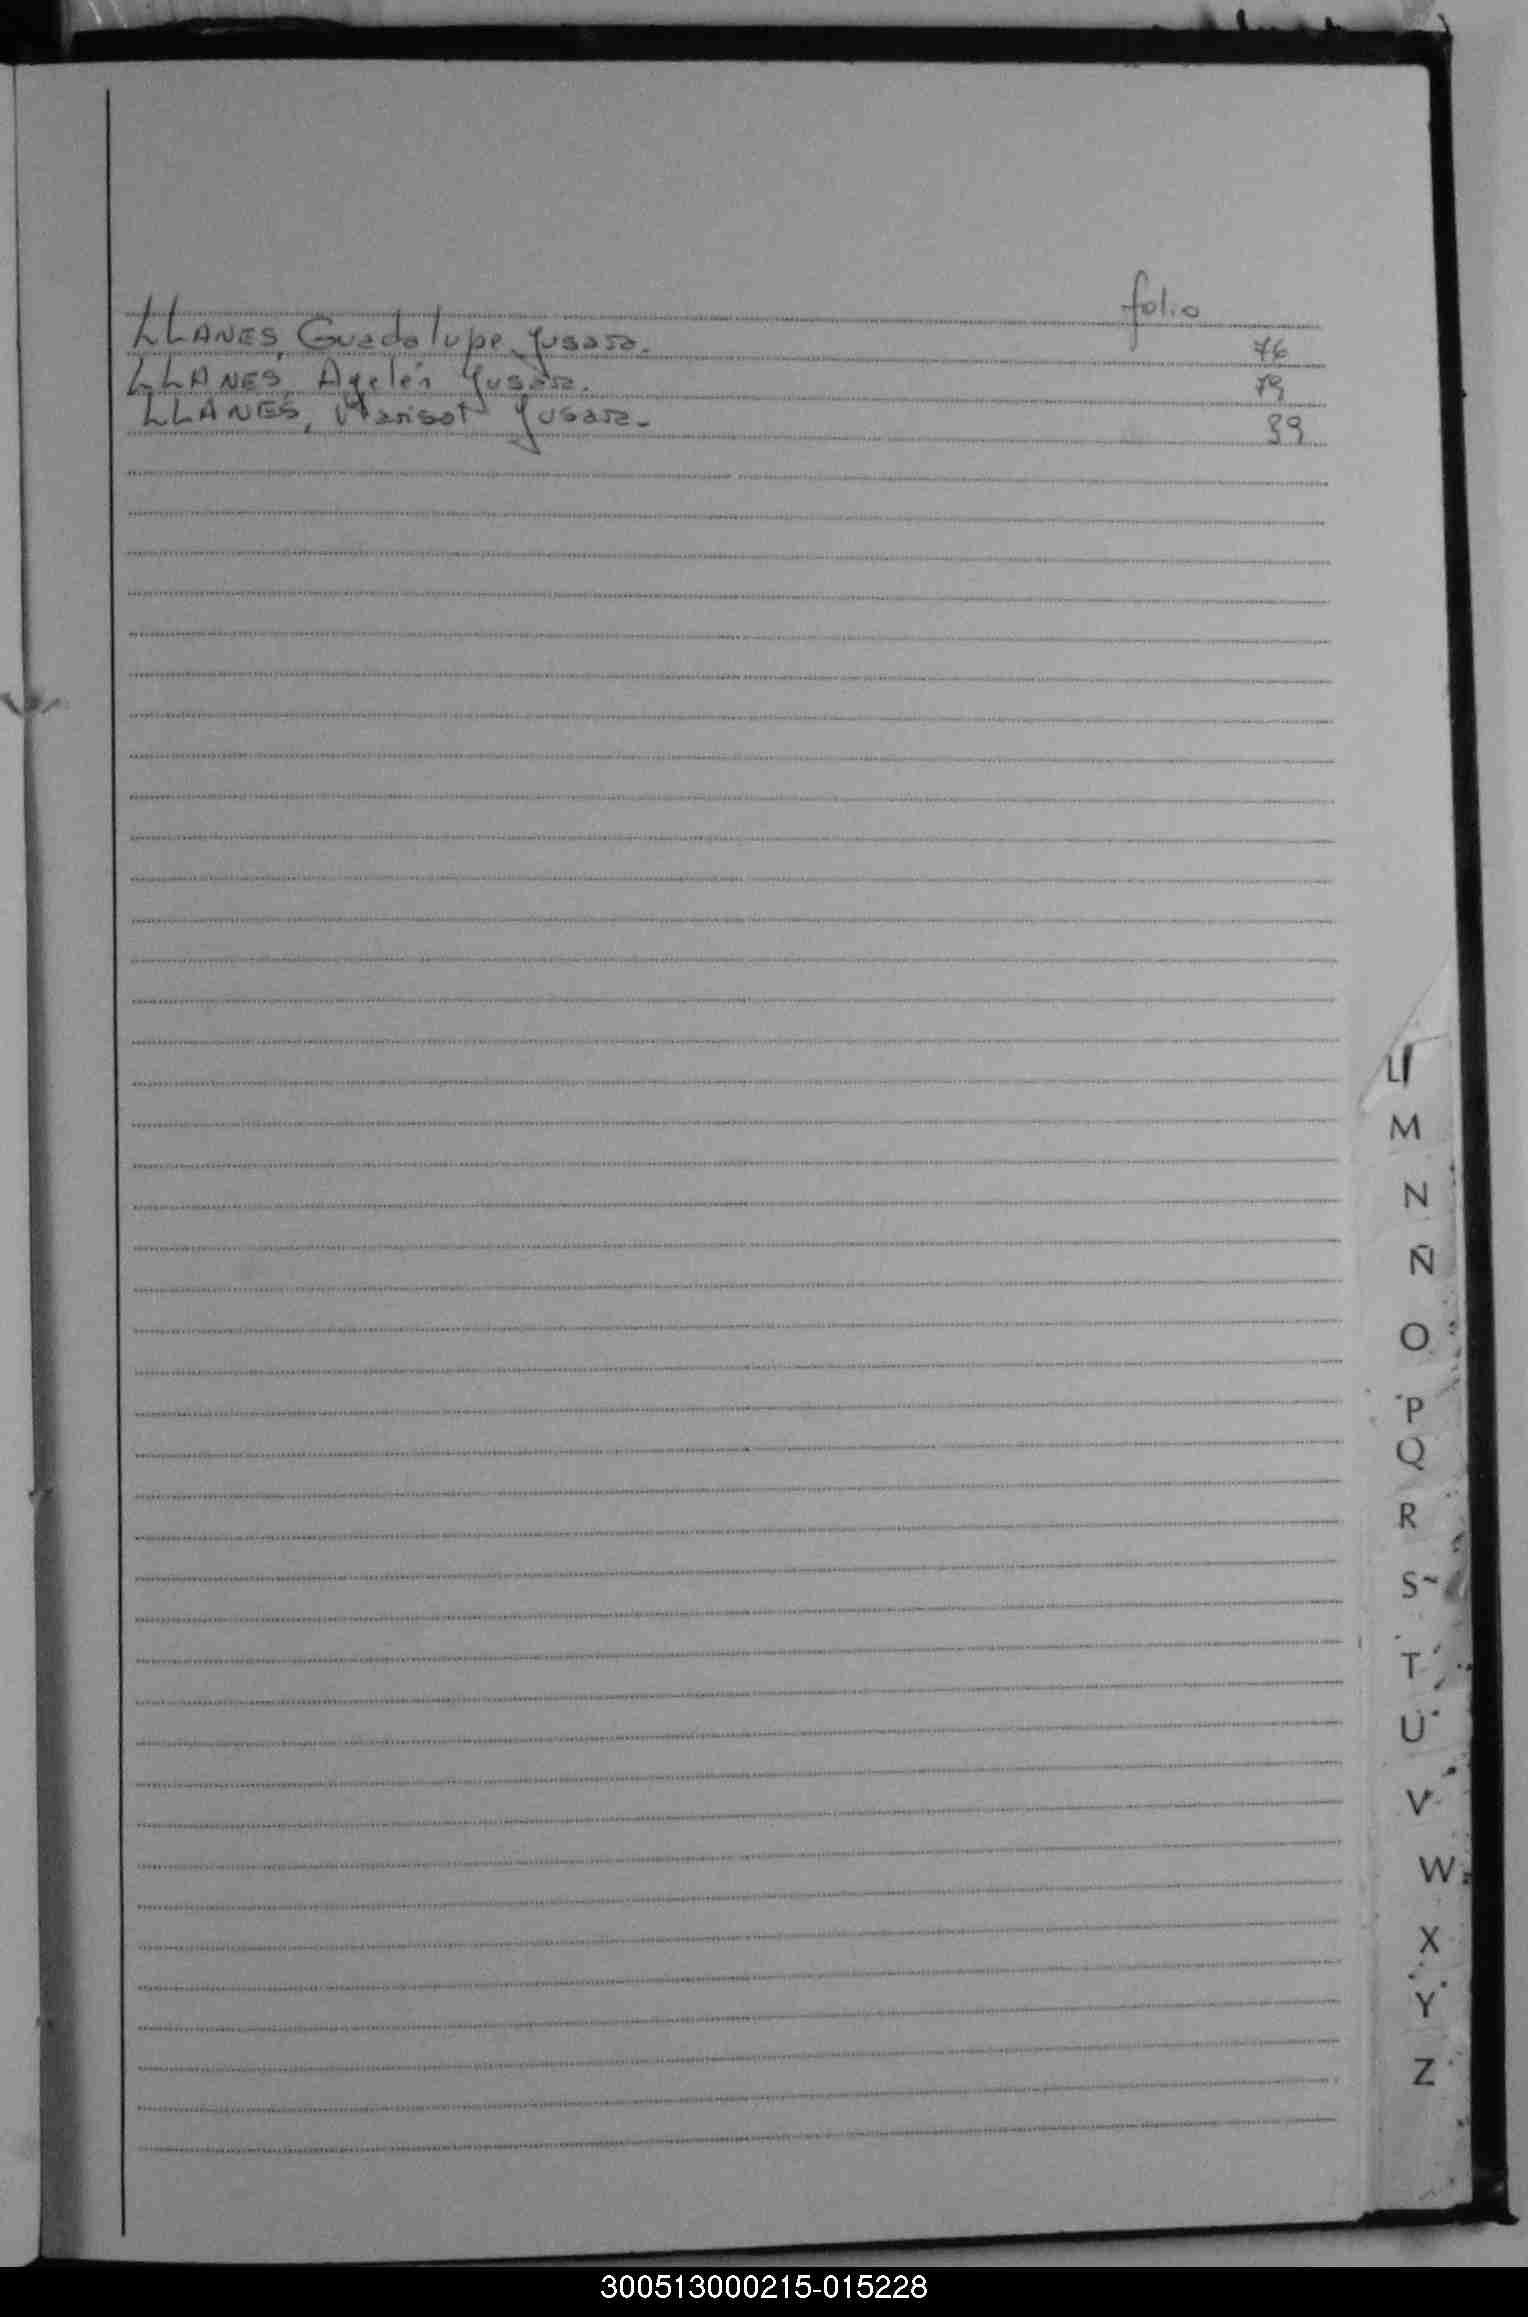 folio
LLANES, Guadalupe Yusara. 76
LLANES, Ayelén Yusara. 79
LLANES, Marisol Yusara. 39
Ll
M
N
Ñ
O
P
Q
R
S
T
U
V
W
X
Y
Z
300513000215-015228